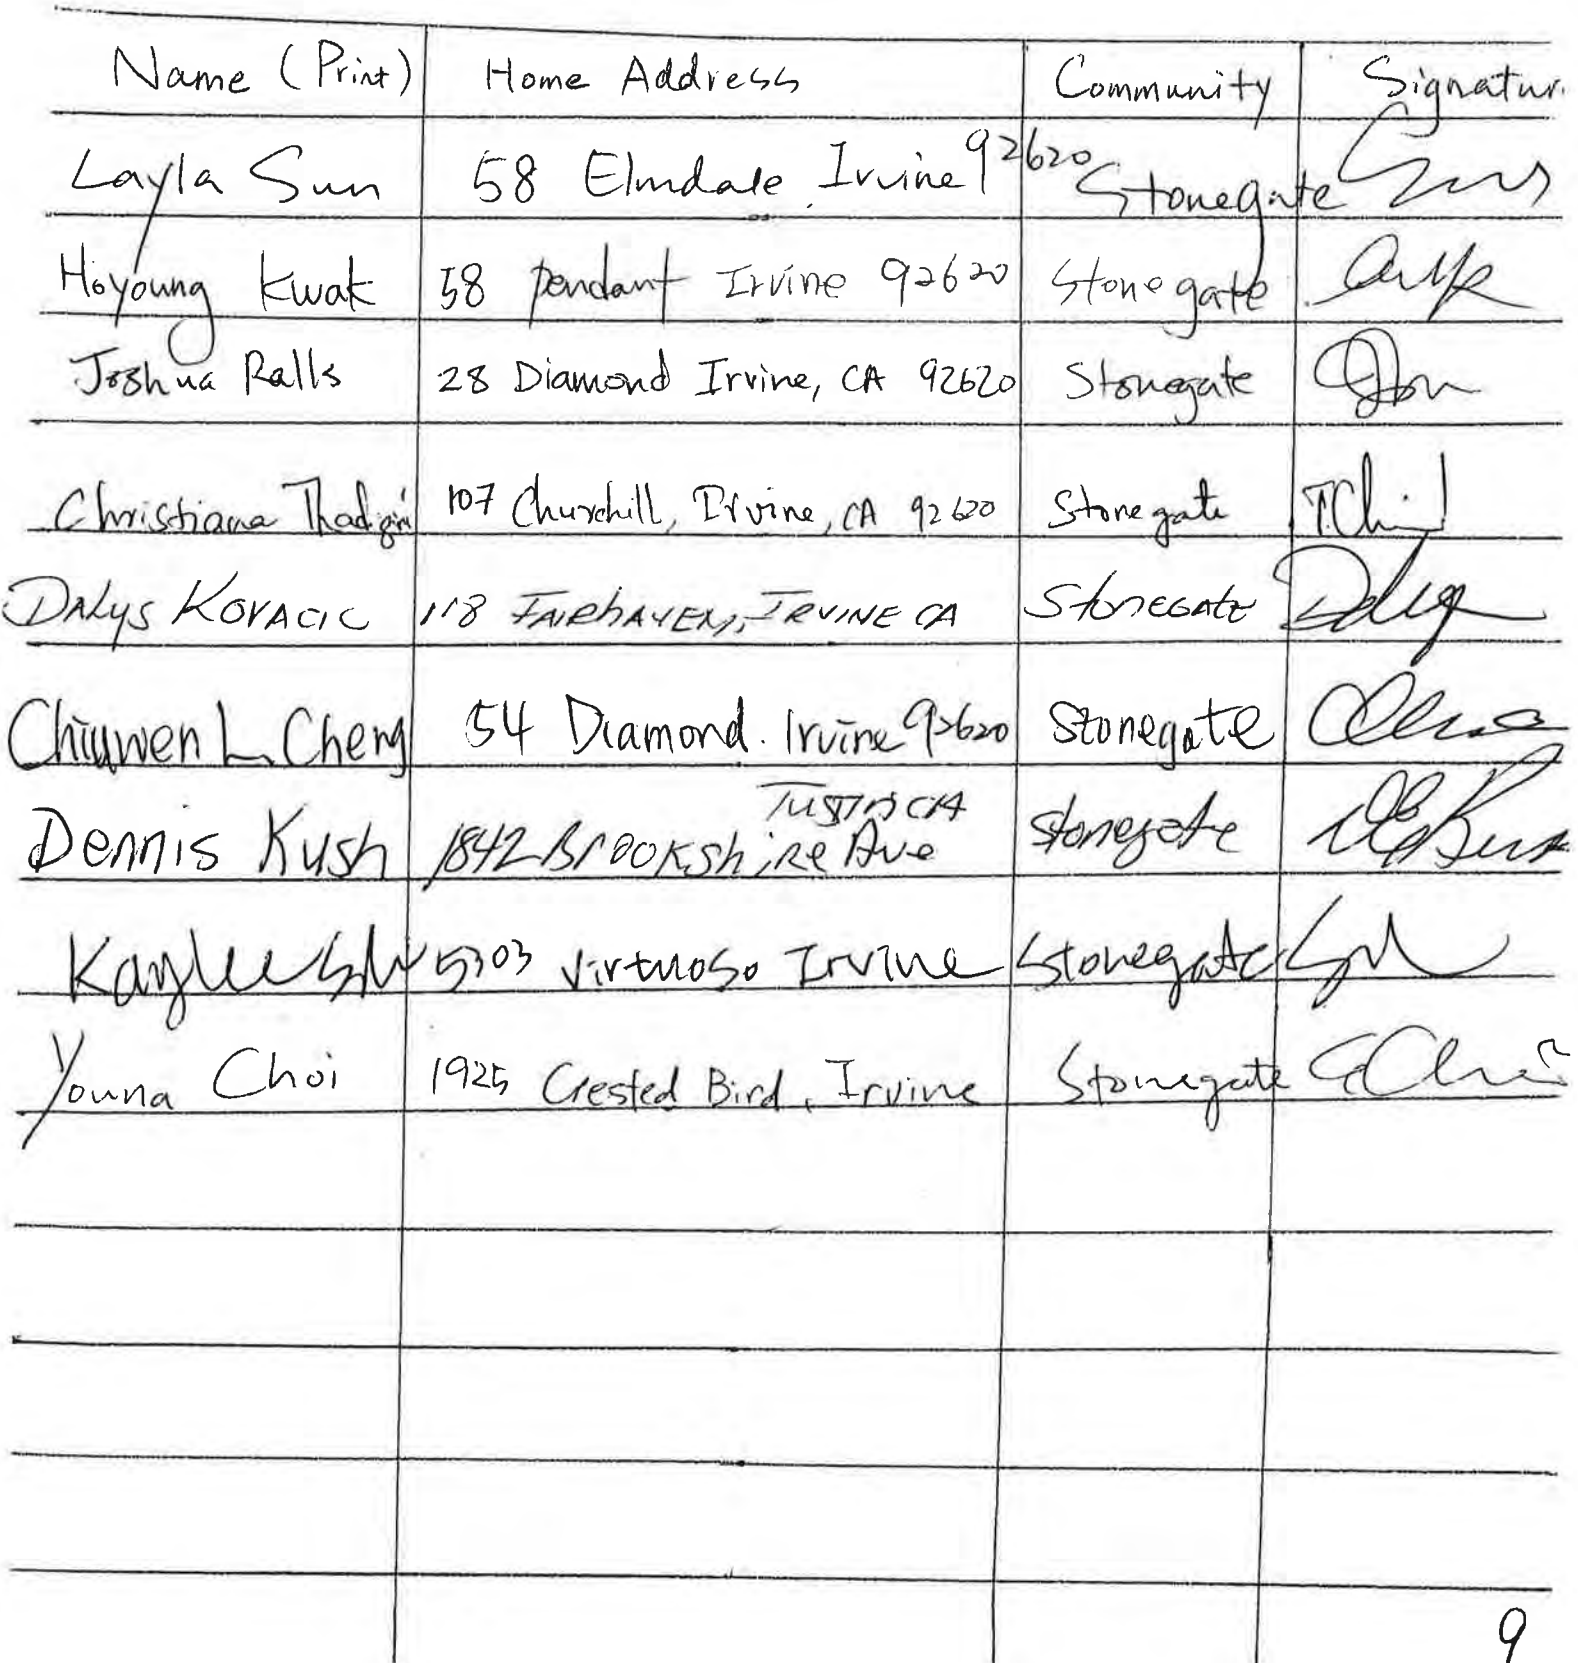 Name (Print) Home Address Community Signatur
Layla Sun 58 Elmdale Irvine 92620 Stonegate
Hoyoung Kwak 58 pendant Irvine 92620 Stonegate
Joshua Ralls 28 Diamond Irvine, CA 92620 Stonegate
Christiana 107 Churchill, Irvine, CA 92620 Stonegate
DALYS KOVACIC 118 FAIRHAVEN, IRVINE CA STONEGATE
Chiuwen L Cheng 54 Diamond. Irvine 92620 Stonegate
Dennis Kush 1842 Brookshire Ave Tustin CA Stonegate
Kaylee 5303 Virtuoso Irvine Stonegate
Youna Choi 1925 Crested Bird, Irvine Stonegate
9